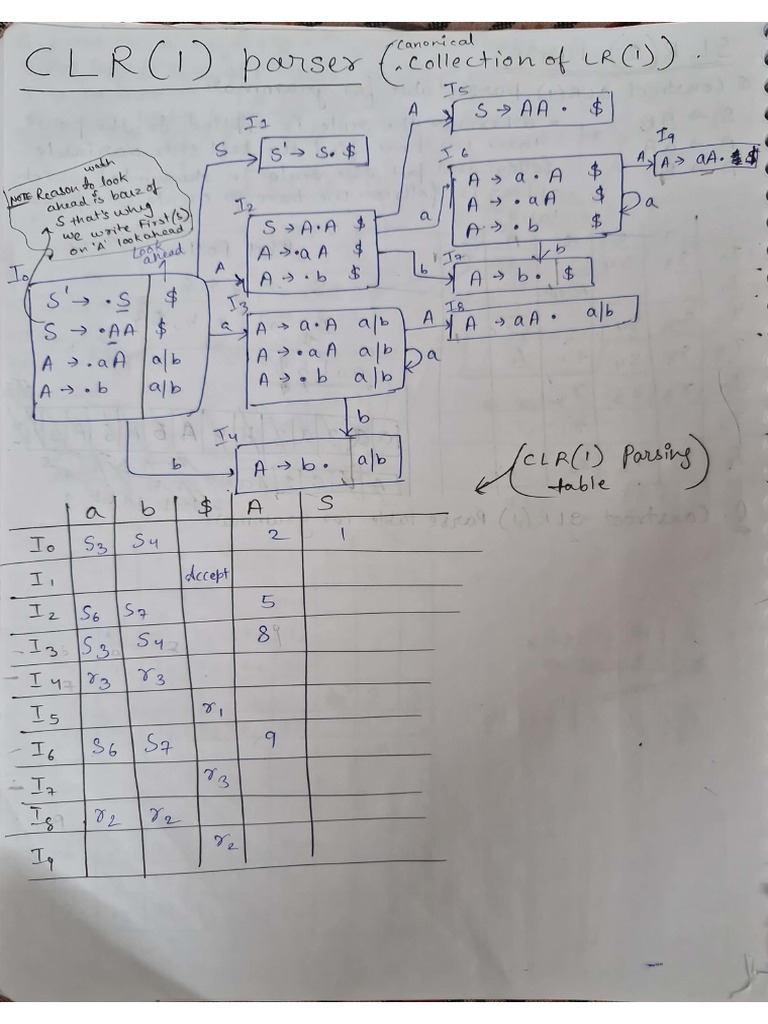 CLR(1) parser (canonical Collection of LR(1)).
NOTE Reason to look
ahead is
S that's why
we write First(S)
on 'A' lookahead
Look
ahead
I0
S' → .S $
S → .AA $
A → .aA a|b
A → .b a|b
S
I1
S' → S. $
A
I2
S → A.A $
A → .aA $
A → .b $
a
I3
A → a.A a|b
A → .aA a|b
A → .b a|b
a
b
b
I4
A → b. a|b
A
I5
S → AA. $
a
I6
A → a.A $
A → .aA $
A → .b $
a
b
b
I7
A → b. $
A
I8
A → aA. a|b
A
I9
A → aA. $
(CLR(1) Parsing
table)
a b $ A S
I0 S3 S4 2 1
I1 Accept
I2 S6 S7 5
I3 S3 S4 8
I4 r3 r3
I5 r1
I6 S6 S7 9
I7 r3
I8 r2 r2
I9 r2